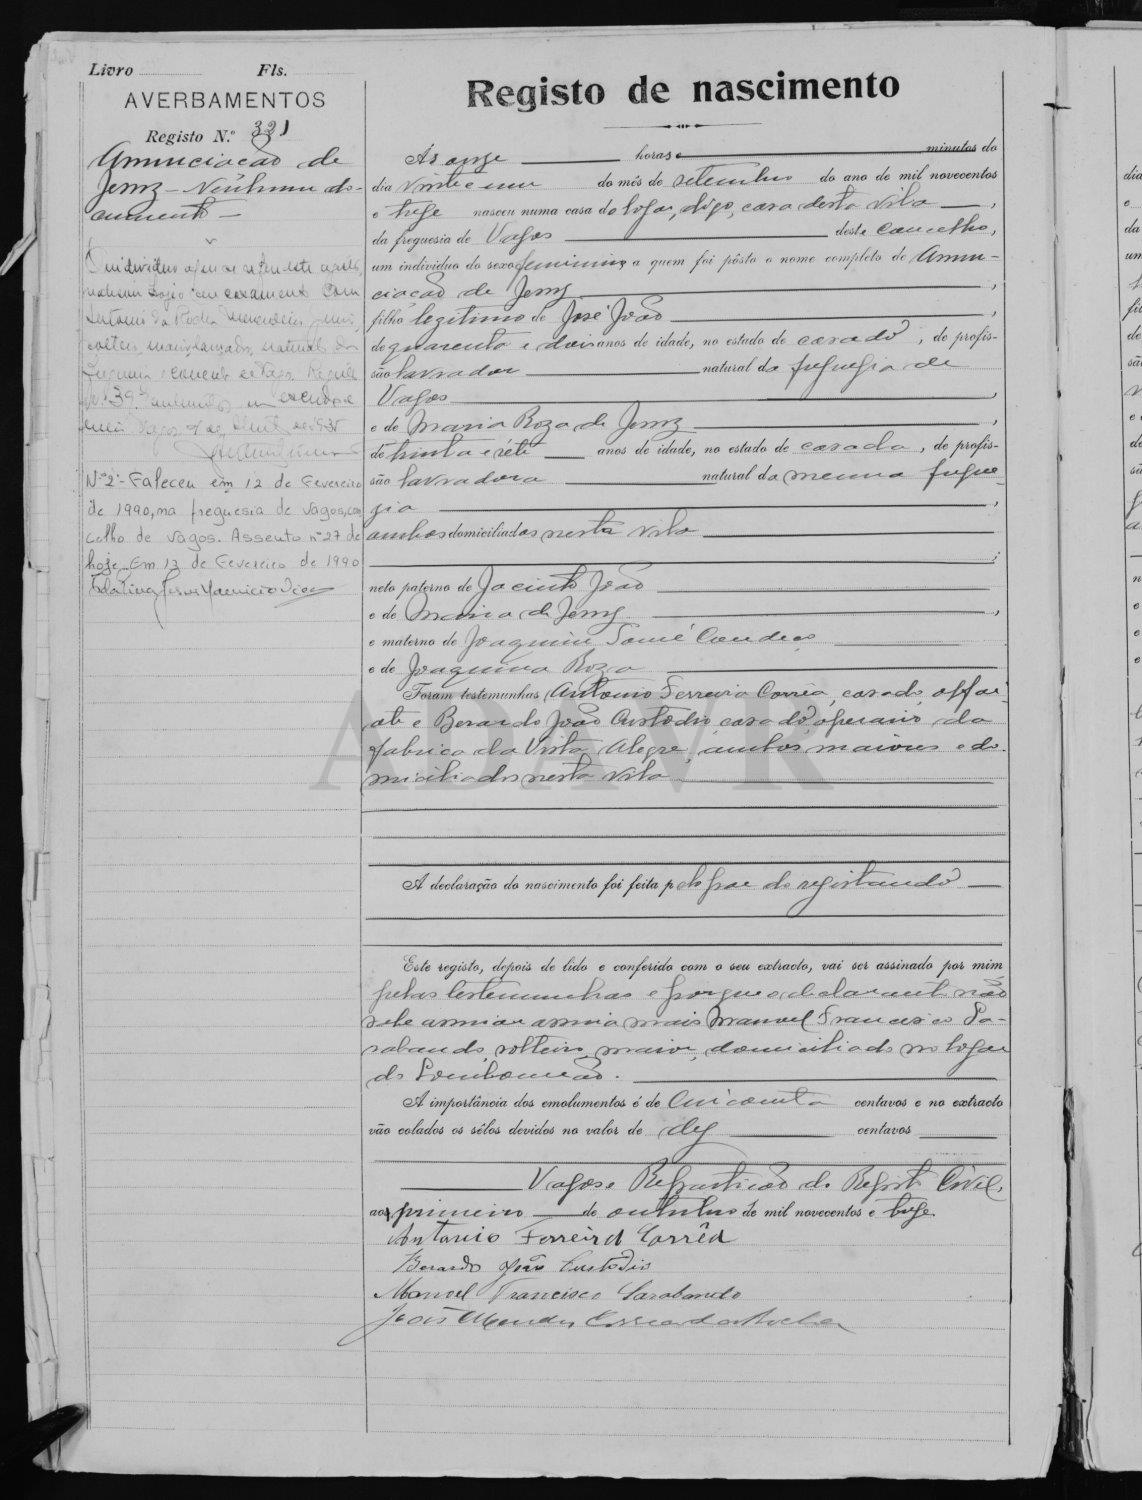 Livro Fls.
AVERBAMENTOS
Registo N.º 321
Annunciação de
Jesus - Nenhum do-
cumento -
O individuo a que se refere este
contraiu hoje casamento com
Antonio da Rocha
solteiro, natural da
freguesia e concelho de Vagos. Registo
n.º 39.
Vagos, de Abril de 193
Nº 2 - Faleceu em 12 de Fevereiro
de 1990, na freguesia de Vagos, con
celho de Vagos. Assento nº 27 de
hoje. Em 13 de Fevereiro de 1990
Registo de nascimento
Ás onze horas e minutos do
dia vinte e um do mês de setembro do ano de mil novecentos
e treze nasceu numa casa do logar, digo, casa desta vila,
da freguesia de Vagos deste concelho,
um indivíduo do sexo feminino a quem foi pôsto o nome completo de Annun-
ciação de Jesus,
filho legitimo de José João,
de quarenta e dois anos de idade, no estado de casado, de profis-
são lavrador natural da freguesia de
Vagos,
e de Maria Roza de Jesus,
de trinta e séte anos de idade, no estado de casada, de profis-
são lavradora natural da mesma fregue-
zia,
ambos domiciliados nesta vila
;
neto paterno de Jacinto João
e de Maria de Jesus,
e materno de Joaquim Tomé Candeas
e de Joaquina Roza
Foram testemunhas Antonio Ferreira Corrêa, casado, alfai-
ate e Berardo João Custodio, casado, operario da
fabrica da Vista Alegre, ambos maiores e do-
miciliados nesta vila.
ADAVR
A declaração do nascimento foi feita pelo pae do registando
Este registo, depois de lido e conferido com o seu extracto, vai ser assinado por mim
pelas testemunhas e porque o declarante não
sabe assinar assina mais Manuel Francisco Sa-
rabando, solteiro, maior, domiciliado no logar
de Lombomeão.
A importância dos emolumentos é de cincoenta centavos e no extracto
vão colados os sêlos devidos no valor de dez centavos
Vagos e Repartição do Registo Civil,
aos primeiro de outubro de mil novecentos e treze.
Antonio Ferreira Corrêa
Berardo João Custodio
Manoel Francisco Sarabando
João Mendes Correia da Rocha